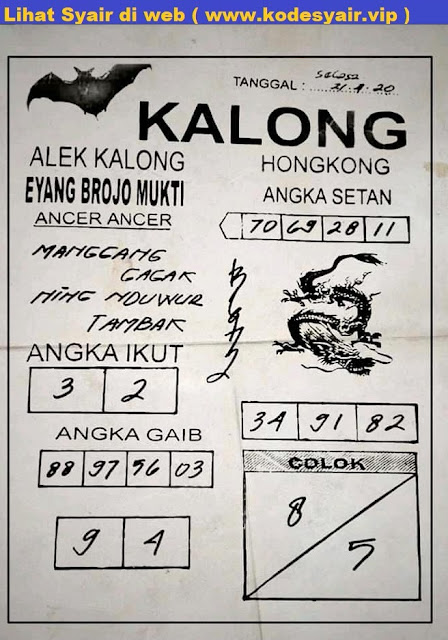 Lihat Syair di web ( www.kodesyair.vip )
TANGGAL : Selasa 21.4.20
KALONG
ALEK KALONG
HONGKONG
EYANG BROJO MUKTI
ANGKA SETAN
ANCER ANCER
70 69 28 11
MANGGANG
GAGAK
MING NDUWUR
TAMBAK
ANGKA IKUT
3 2
34 91 82
ANGKA GAIB
88 97 56 03
COLOK
8
5
9 4